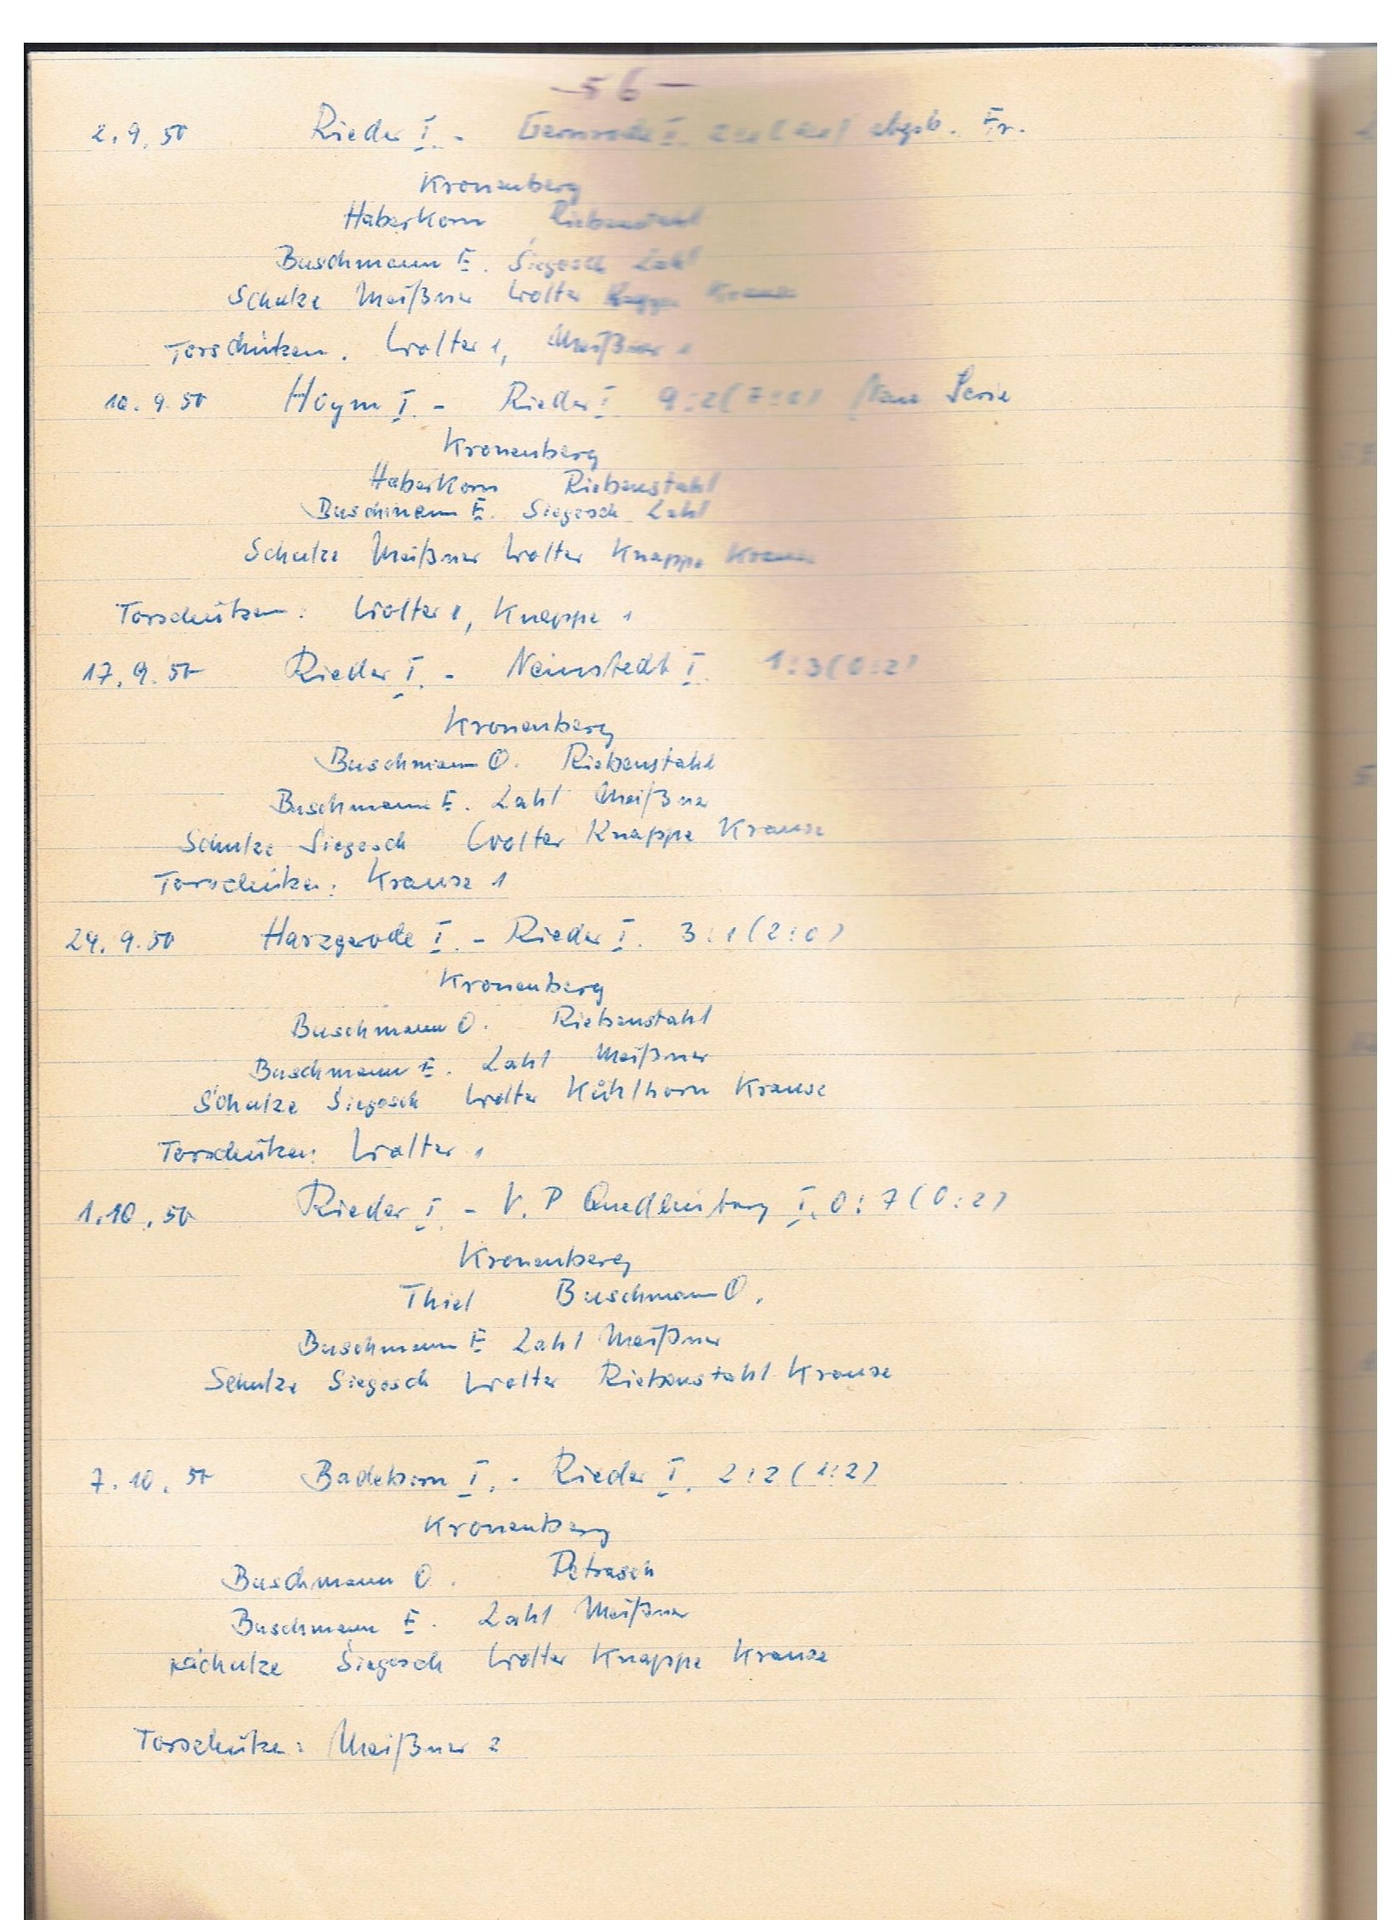 - 56 -
2.9.50 Rieder I. - Gernrode I. abgeb. Fr.
Kronenberg
Haberkorn Riebenstahl
Buschmann E. Siegesch Zahl
Schulze Meißner Wolter Krause
Torschützen. Wolter 1, Meißner 1
10.9.50 Hoym I. - Rieder I 9:2 (7:0) Neue Serie
Kronenberg
Haberkorn Riebenstahl
Buschmann E. Siegesch Zahl
Schulze Meißner Wolter Knappe Krause
Torschützen: Wolter 1, Knappe 1
17.9.50 Rieder I. - Neinstedt I. 1:3 (0:2)
Kronenberg
Buschmann O. Riebenstahl
Buschmann E. Zahl Meißner
Schulze Siegesch Wolter Knappe Krause
Torschütze: Krause 1
24.9.50 Harzgerode I. - Rieder I. 3:1 (2:0)
Kronenberg
Buschmann O. Riebenstahl
Buschmann E. Zahl Meißner
Schulze Siegesch Wolter Kühlhorn Krause
Torschütze: Wolter 1
1.10.50 Rieder I. - V.P Quedlinburg I. 0:7 (0:2)
Kronenberg
Thiel Buschmann O.
Buschmann E Zahl Meißner
Schulze Siegesch Wolter Riebenstahl Krause
7.10.50 Badeborn I. - Rieder I. 2:2 (1:2)
Kronenberg
Buschmann O. Petrasch
Buschmann E. Zahl Meißner
Schulze Siegesch Wolter Knappe Krause
Torschütze: Meißner 2